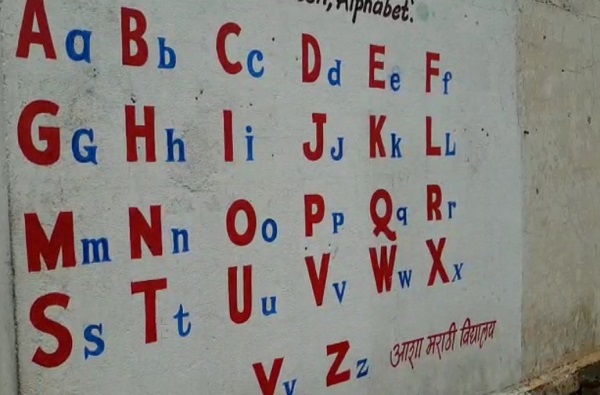 Alphabet.
A a B b C c D d E e F f
G G H h I i J J K k L L
M m N n O o P p Q q R r
S s T t U u V v W w X x
Y y Z z
आशा मराठी विद्यालय